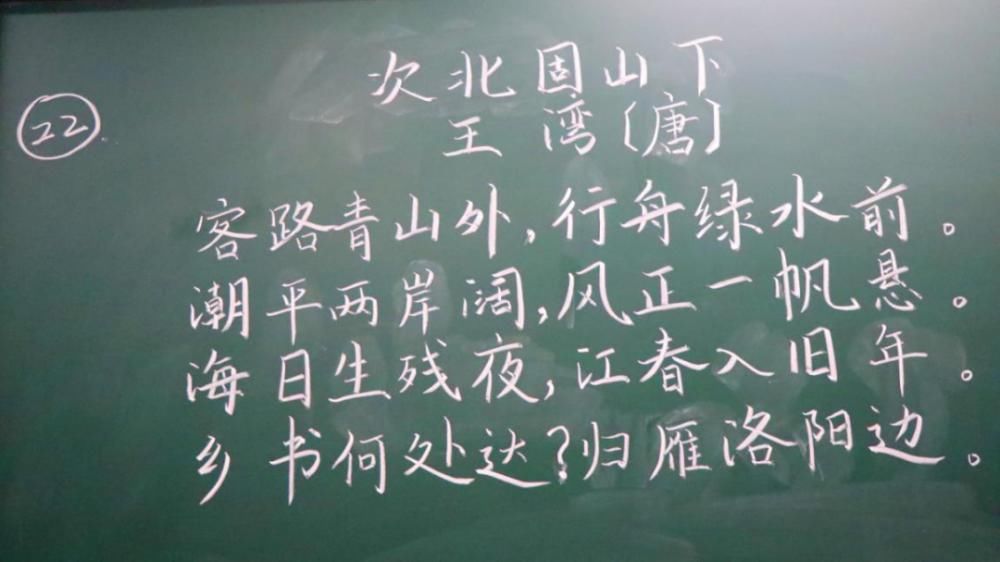 次北固山下
㉒
王湾〔唐〕
客路青山外,行舟绿水前。
潮平两岸阔,风正一帆悬。
海日生残夜,江春入旧年。
乡书何处达?归雁洛阳边。